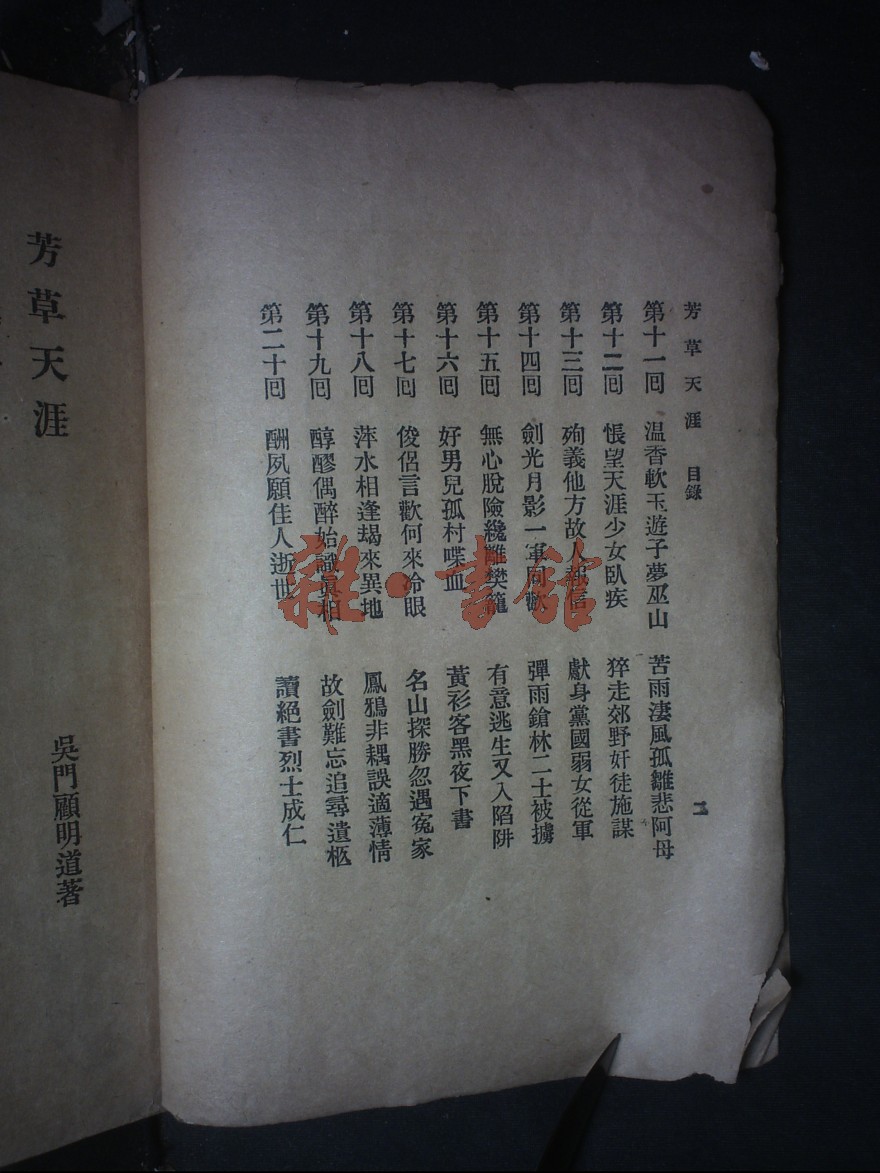 芳草天涯　目錄
第十一囘　温香軟玉遊子夢巫山　苦雨淒風孤雛悲阿母
第十二囘　悵望天涯少女臥疾　猝走郊野奸徒施謀
第十三囘　殉義他方故人報信　獻身黨國弱女從軍
第十四囘　劍光月影一軍同歡　彈雨鎗林二士被擄
第十五囘　無心脫險纔離樊籠　有意逃生又入陷阱
第十六囘　好男兒孤村喋血　黃衫客黑夜下書
第十七囘　俊侶言歡何來冷眼　名山探勝忽遇冤家
第十八囘　萍水相逢朅來異地　鳳鴉非耦誤適薄情
第十九囘　醇醪偶醉始識眞相　故劍難忘追尋遺柩
第二十囘　酬夙願佳人逝世　讀絕書烈士成仁
二
芳草天涯
吳門顧明道著
雜·書館